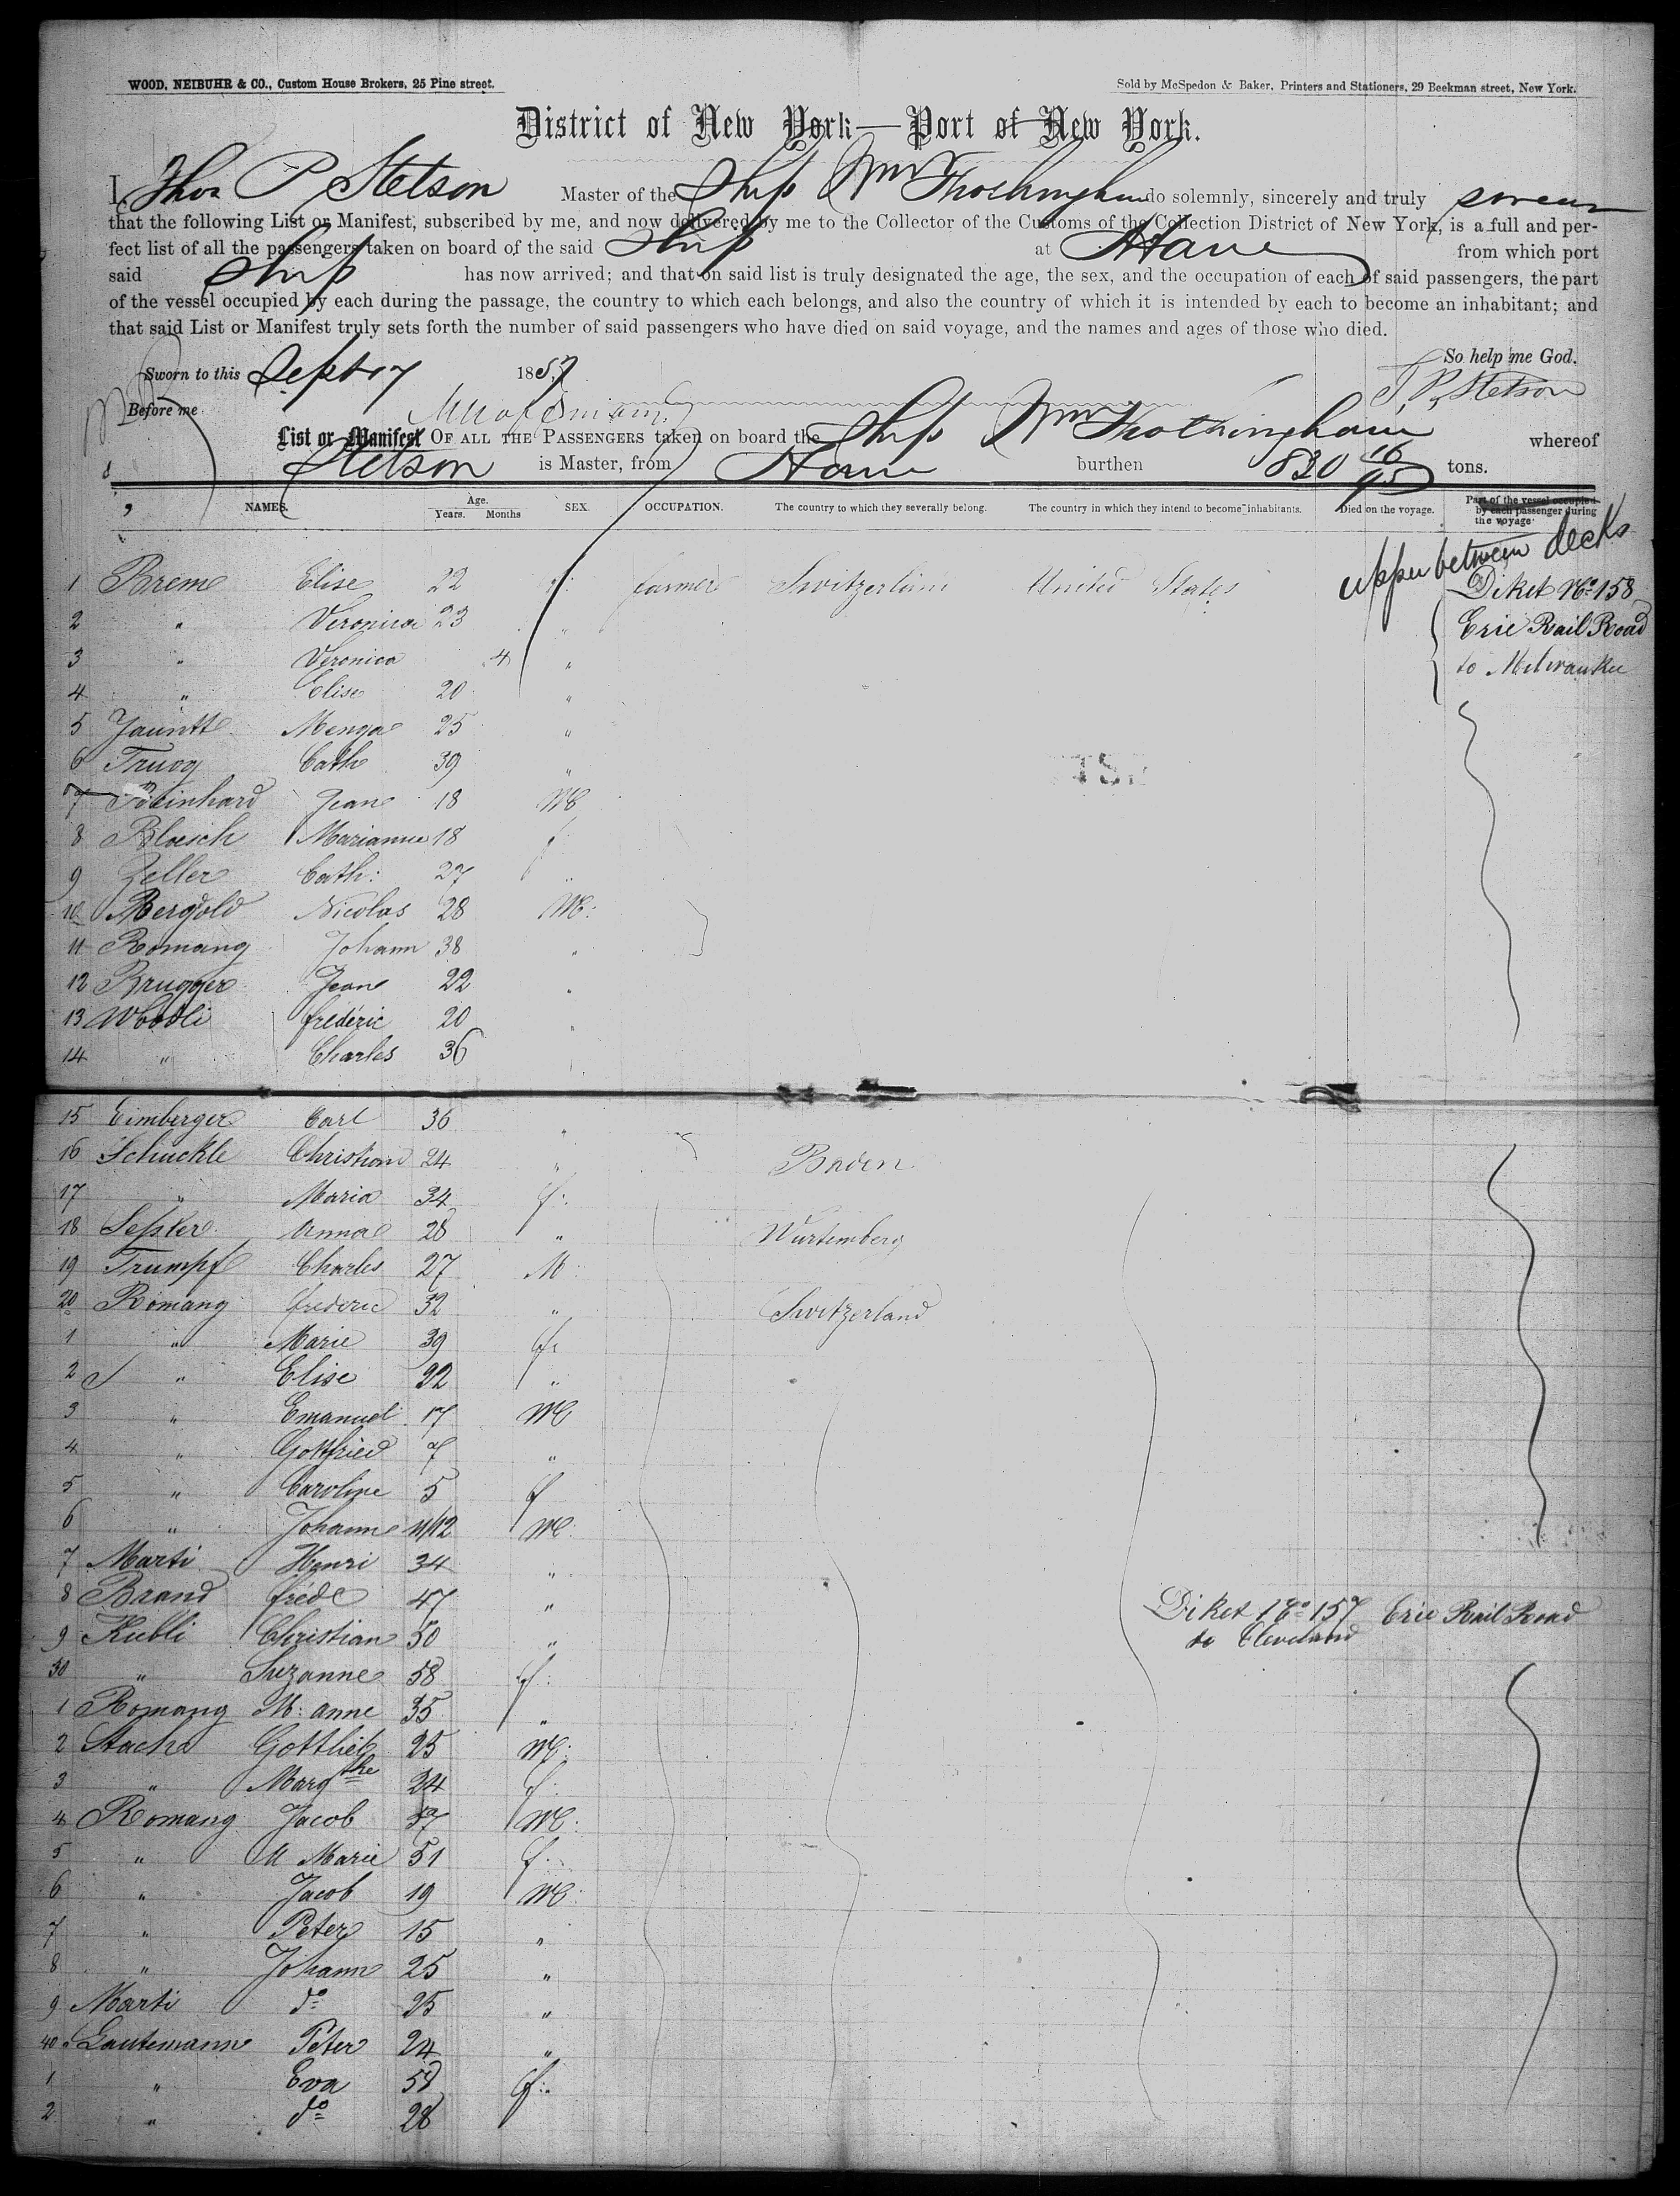 WOOD, NEIBUHR & CO., Custom House Brokers, 25 Pine street.
Sold by McSpedon & Baker, Printers and Stationers, 29 Beekman street, New York.
District of New York—Port of New York.
I, Thos P Stetson Master of the Ship Wm Frothingham do solemnly, sincerely and truly swear
that the following List or Manifest, subscribed by me, and now delivered by me to the Collector of the Customs of the Collection District of New York, is a full and per-
fect list of all the passengers taken on board of the said Ship at Havre from which port
said Ship has now arrived; and that on said list is truly designated the age, the sex, and the occupation of each of said passengers, the part
of the vessel occupied by each during the passage, the country to which each belongs, and also the country of which it is intended by each to become an inhabitant; and
that said List or Manifest truly sets forth the number of said passengers who have died on said voyage, and the names and ages of those who died.
So help me God.
Sworn to this Sept 17 1857
T. P. Stetson
Before me
List or Manifest OF ALL THE PASSENGERS taken on board the Ship Wm Frothingham whereof
Stetson is Master, from Havre burthen 830 16/95 tons.
NAMES. Age. Years. Months SEX. OCCUPATION. The country to which they severally belong. The country in which they intend to become inhabitants. Died on the voyage. Part of the vessel occupied by each passenger during the voyage
upper between decks
1 Breme Elise 22 f: farmer Switzerland United States Diket No 158
2 " Veronica 23 " Erie Rail Road
3 " Veronica 4 " to Milwaukee
4 " Elise 20 "
5 Jauntt Menga 25 "
6 Truog Cath 39 "
7 Reinhard Jean 18 M
8 Bloesch Marianne 18 f
9 Zeller Cath: 27 "
10 Bergold Nicolas 28 M:
11 Romang Johann 38 "
12 Brugger Jean 22 "
13 Wbodli frédéric 20 "
14 " Charles 36
15 Eimberger Carl 36 "
16 Schuckle Christian 24 " Baden
17 " Maria 34 f:
18 Sepker Anna 28 " Wurtemberg
19 Trumpf Charles 27 M
20 Romang frederic 32 " Switzerland
1 " Marie 39 f:
2 " Elise 22 "
3 " Emanuel 17 M
4 " Gottfried 7 "
5 " Caroline 5 f
6 " Johann 11/12 M:
7 Marti Henri 34 "
8 Brand fréde 47 " Diket No 157 Erie Rail Road
9 Kubli Christian 50 " to Cleveland
30 " Suzanne 58 f:
1 Romang M: anne 35 "
2 Stache Gottlieb 25 M:
3 " Margthe 24 f:
4 Romang Jacob 57 M:
5 " M Marie 51 f.
6 " Jacob 19 M:
7 " Peter 15 "
8 " Johann 25 "
9 Marti do 25 "
40 Lautemann Peter 24 "
1 " Eva 58 f:
2 " do 28